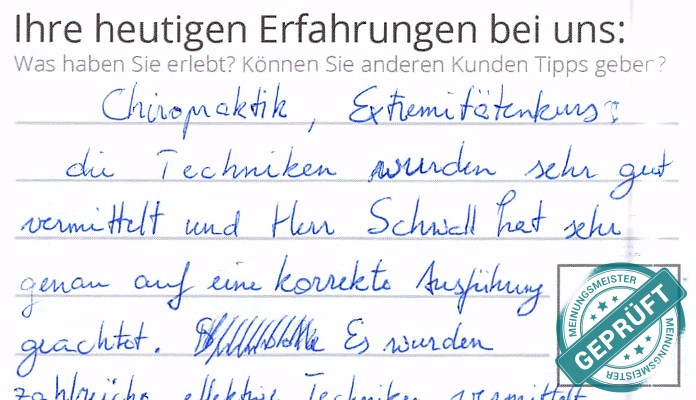 Ihre heutigen Erfahrungen bei uns:
Was haben Sie erlebt? Können Sie anderen Kunden Tipps geben?
Chiropraktik, Extremitätenkurs:
die Techniken wurden sehr gut
vermittelt und Herr Schwall hat sehr
genau auf eine korrekte Ausführung
geachtet. Es wurden
zahlreiche effektive Techniken vermittelt
MEINUNGSMEISTER
GEPRÜFT
MEINUNGSMEISTER